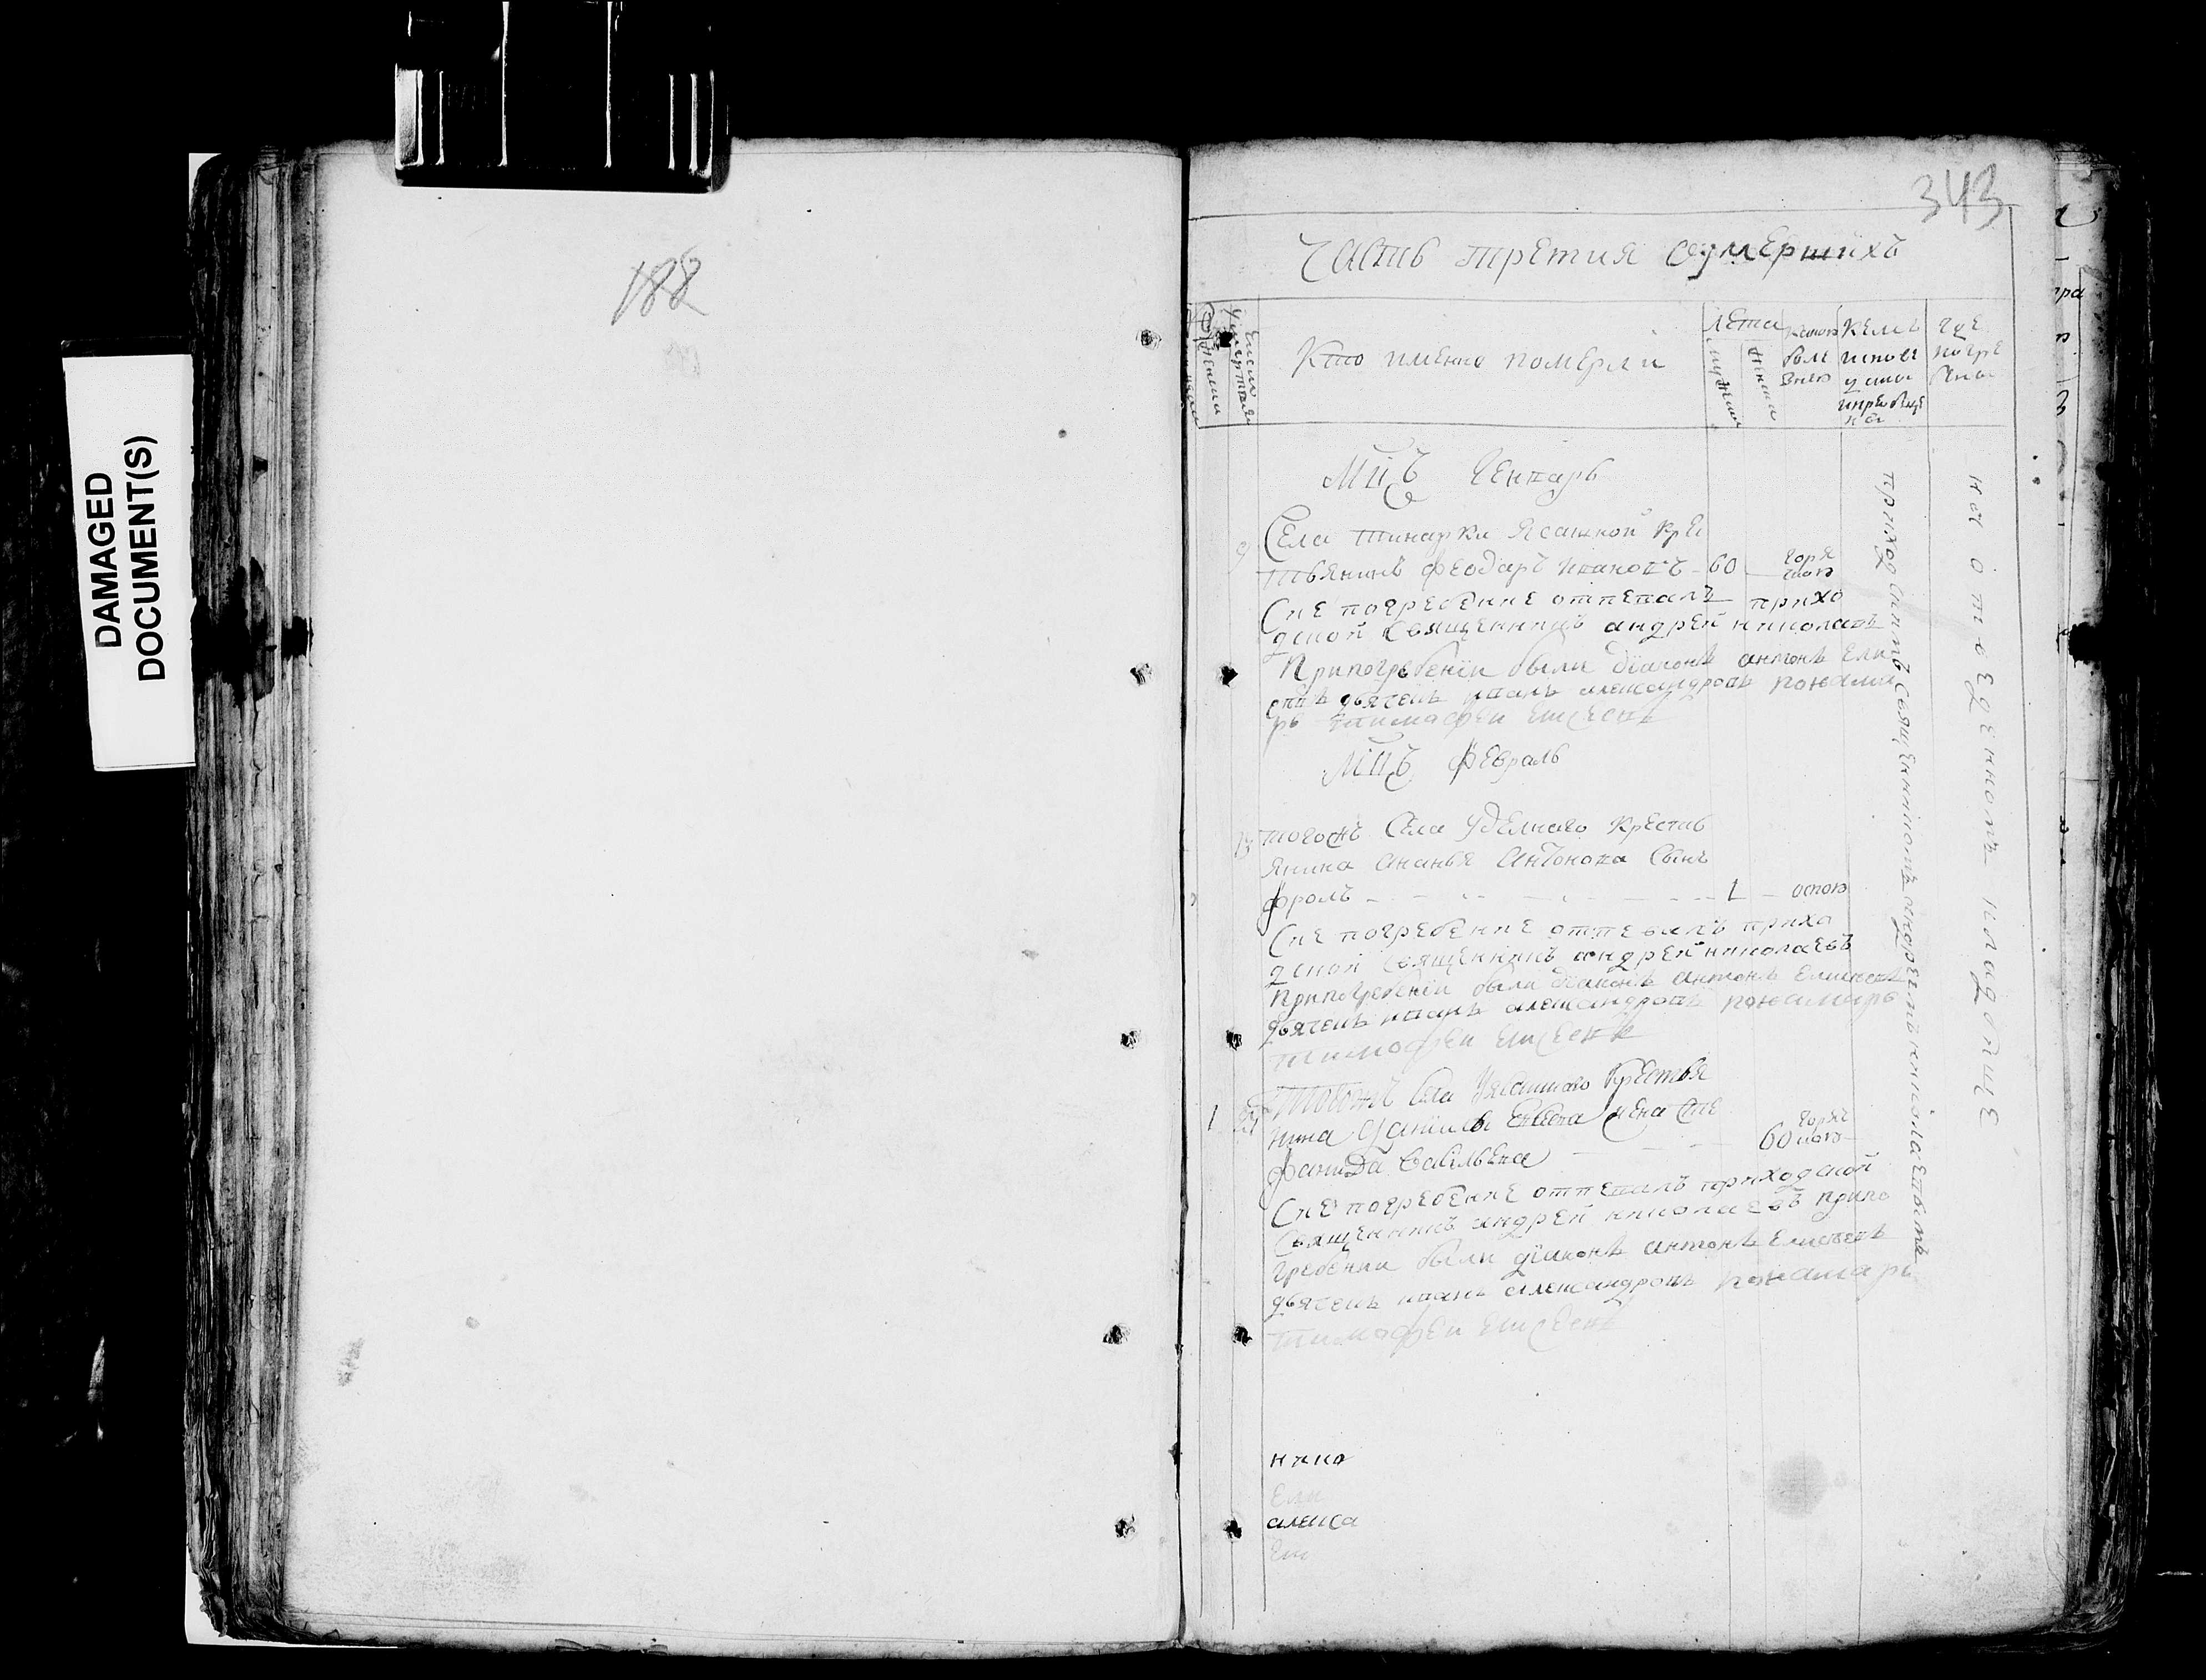 DAMAGED
DOCUMENT(S)
188
343
Часть третия оумершихъ
Кто именно померли
лета
мужеска
женска
кемъ
испове
даны
где
погре
бены
Мцъ Генварь
9
Села Тинарки Ясашной Кре
стьянинъ феодаръ ивановъ 60 горя
чкою
Сие погребение отпевалъ прихо
дской священникъ андрей николаевъ
При погребении были диаконъ антонъ Ели
дьячекъ иванъ александровъ понама
рь тимофеи
Мцъ февраль
13
тогожъ Села Уделнаго Кресть
янина Ананья Антонова Сынъ
фролъ 1 оспою
Сие погребение отпевалъ прихо
дской священникъ андрей николаевъ
При погребении были диаконъ антонъ Елисеевъ
дьячекъ иванъ александровъ понамарь
тимофеи
1
Тогожъ Села Крестья
нина жена Сте
фанида Васильева 60 горяч
кою
Сие погребение отпевалъ приходской
Священникъ андрей николаевъ при по
гребении были диаконъ антонъ Елисеевъ
дьячекъ иванъ александровъ понамарь
тимофеи
приходскимъ священникомъ андреемъ николаевымъ
на отведенномъ кладбище
нико
Ели
алекса